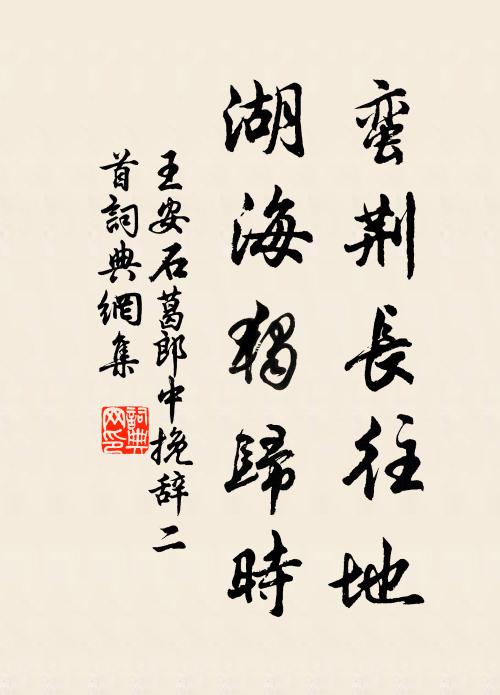 蛮荆長往地
湖海獨歸時
王安石葛郎中挽辞二
首詞典網集
詞典
网印